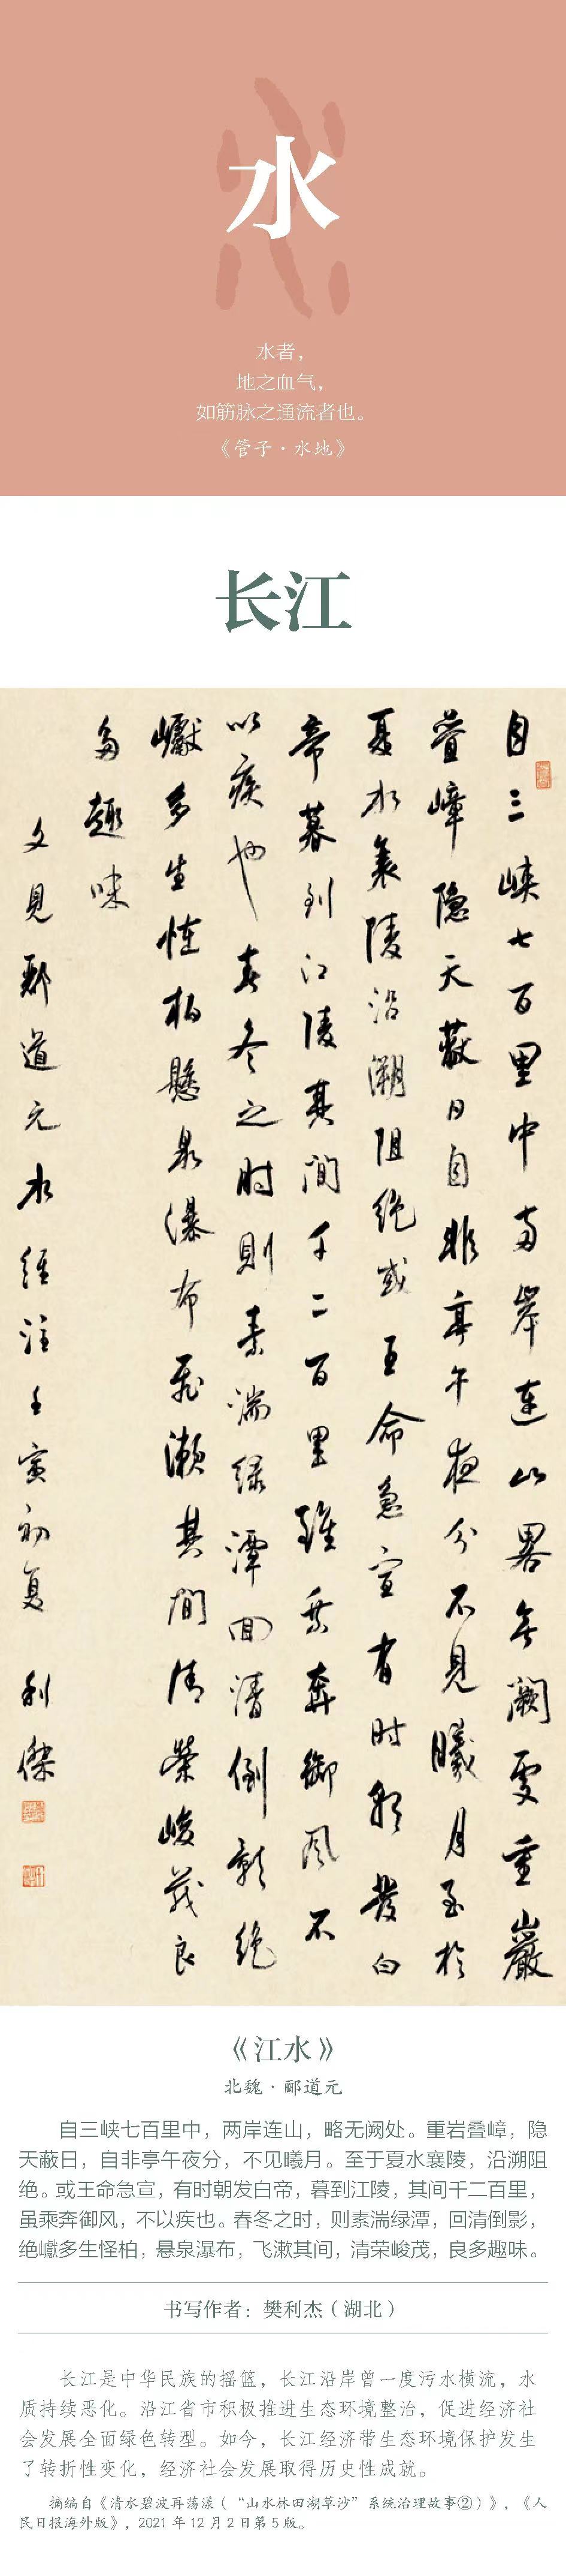 水
水者，
地之血气，
如筋脉之通流者也。
《管子·水地》
长江
自三峡七百里中两岸連山畧無闕處重巖
疊嶂隐天蔽日自非亭午夜分不見曦月至於
夏水襄陵沿溯阻絶或王命急宣有时朝發白
帝暮到江陵其間千二百里雖乘奔御風不
以疾也春冬之时則素湍緑潭回清倒影絶
巘多生怪柏懸泉瀑布飛漱其間清榮峻茂良
多趣味
文見酈道元水經注壬寅初夏 利傑
《江水》
北魏·郦道元
自三峡七百里中，两岸连山，略无阙处。重岩叠嶂，隐
天蔽日，自非亭午夜分，不见曦月。至于夏水襄陵，沿溯阻
绝。或王命急宣，有时朝发白帝，暮到江陵，其间千二百里，
虽乘奔御风，不以疾也。春冬之时，则素湍绿潭，回清倒影，
绝巘多生怪柏，悬泉瀑布，飞漱其间，清荣峻茂，良多趣味。
书写作者：樊利杰（湖北）
长江是中华民族的摇篮，长江沿岸曾一度污水横流，水
质持续恶化。沿江省市积极推进生态环境整治，促进经济社
会发展全面绿色转型。如今，长江经济带生态环境保护发生
了转折性变化，经济社会发展取得历史性成就。
摘编自《清水碧波再荡漾（“山水林田湖草沙”系统治理故事②）》，《人
民日报海外版》，2021 年 12 月 2 日第 5 版。